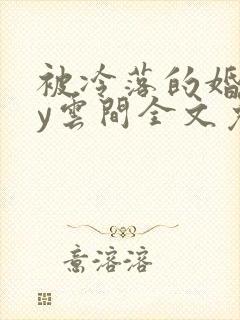 被冷落的婚
y雲間全文
意溶溶